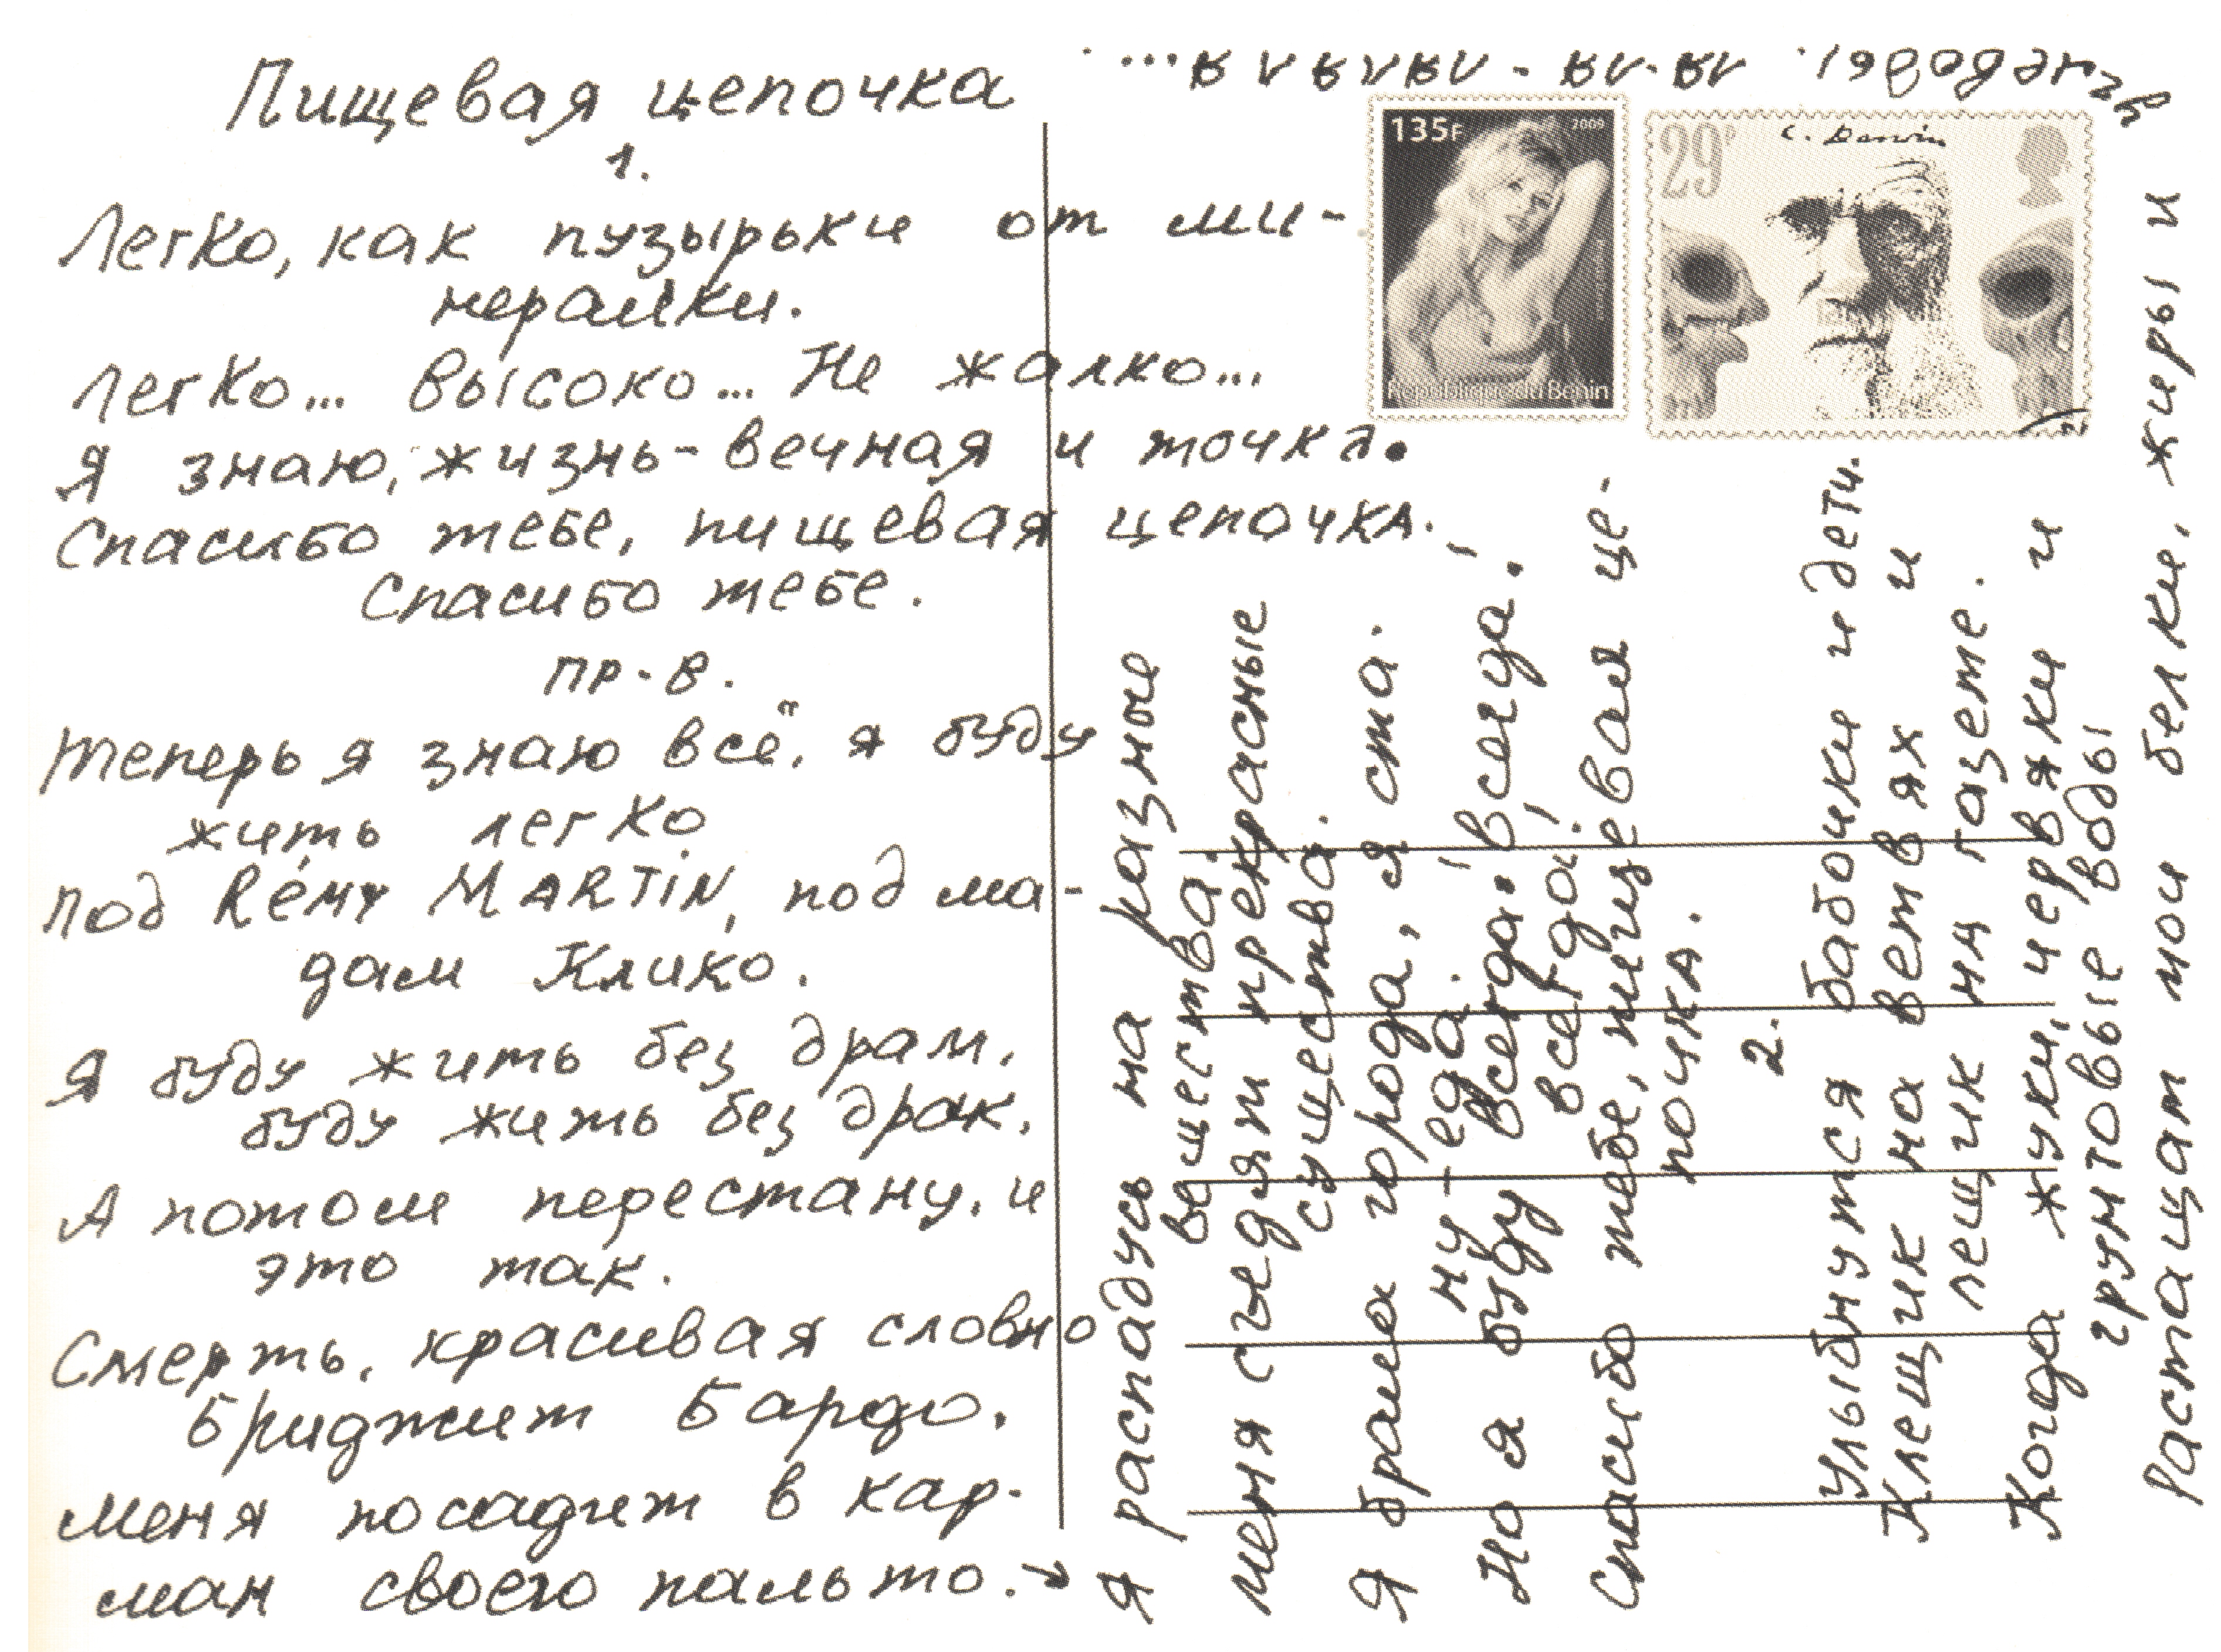 Пищевая цепочка
1.
Легко, как пузырьки от ми-
нералки.
Легко... высоко... Не жалко...
Я знаю, жизнь - вечная и точка.
Спасибо тебе, пищевая цепочка.
Спасибо тебе.
пр-в.
Теперь я знаю всё, я буду
жить легко
Под Rémy MARTiN, под ма-
дам Клико.
Я буду жить без драм,
буду жить без драк,
А потом перестану, и
это так.
Смерть, красивая словно
Бриджит Бардо,
Меня посадит в кар-
ман своего пальто. →
Я распадусь на разные
вещества;
Меня съедят прекрасные
существа.
Я брала города, я ста.
ну - еда.
Но я буду всегда! всегда!
всегда!
Спасибо тебе, пищевая це-
почка.
2.
Улыбнутся бабочки и дети.
Клещик на ветвях и
лещик на газете.
Когда жуки, червяки и
грунтовые воды
Растащат мои белки, жиры и
углеводы. ла-ла-лала ла...
135F
2009
République du Bénin
29P
C. Darwin